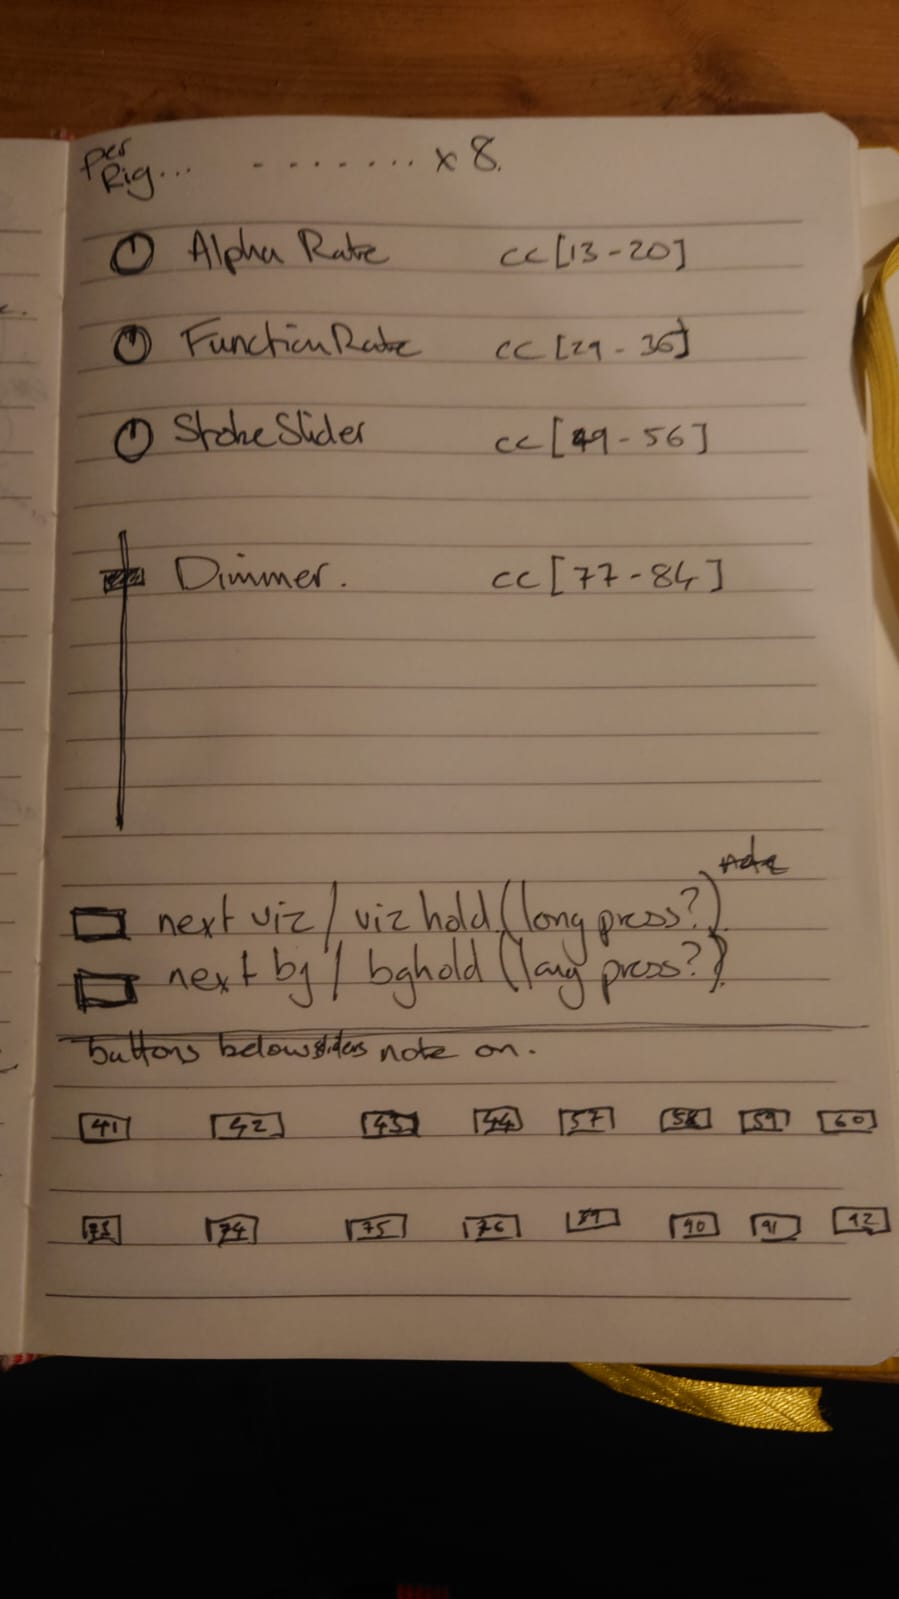 per
Rig... - - - - . . . . x 8.
Alpha Rate cc[13-20]
FunctionRate cc[29-36]
StrokeSlider cc[49-56]
Dimmer. cc[77-84]
next viz / viz hold (long press?)
next bg / bg hold (long press?)
buttons below sliders note on.
41 42 43 44 57 58 59 60
73 74 75 76 89 90 91 92